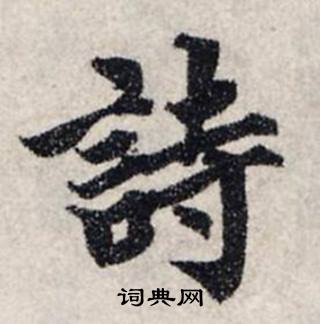 詩
词典网